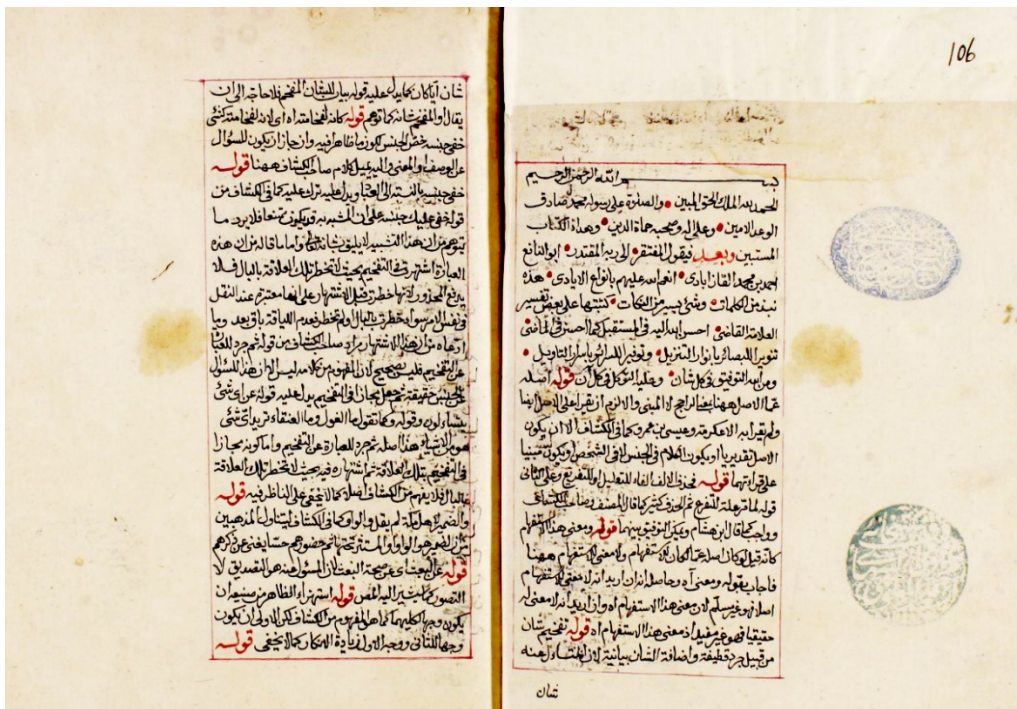 106
بسم الله الرحمن الرحيم
الحمد لله الملك الحق المبين والصلوة على رسوله محمد صادق
الوعد الامين وعلى اله وصحبه حماة الدين وهداة الكتاب
المستبين وبعد فيقول المفتقر الى ربه المقتدر ابو النافع
احمد بن محمد القازابادى انعم الله عليهم بانواع الايادى هذه
نبذ من الكلمات وشئ يسير من النكات كتبتها على بعض تفسير
العلامة القاضى احسن الله اليه فى المستقبل كما احسن فى الماضى
تنويرا للبصائر بانوار التنزيل وتوفيرا للسرائر باسرار التاويل
ومن الله التوفيق فى كل شان وعليه التوكل فى كل آن قوله اصله
عما الاصل ههنا بمعنى الراجح لا المبنى والا لزم ان يقرأ على الاصل ايضا
ولم يقرأ به الا عكرمة وعيسى بن عمرو كما فى الكشاف الا ان يكون
الاصل تقديريا او يكون الكلام فى الجنس لا فى الشخص او يكون مبنيا
على قراءتهما قوله فحذف الالف الفاء للتعليل او للتفريع وعلى الثانى
قوله لما مر علة للتفرع ثم الحذف كثير كما قال المصنف وصاحب الكشاف
وواجب كما قال ابن هشام ويمكن التوفيق بينهما قوله ومعنى هذا الاستفهام
كانه قيل لو كان اصله عما لكان للاستفهام ولا معنى للاستفهام ههنا
فاجاب بقوله ومعنى آه وحاصله ان اريد انه لا معنى للاستفهام
اصلا فهو غير مسلم لان معنى هذا الاستفهام اه وان اريد انه لا معنى له
حقيقيا فهو غير مفيد اذ معنى هذا الاستفهام اه قوله تفخيم شان
من قبيل جرد قطيفة واضافة الشان بيانية لان المتساءل عنه
شان
شان آيا كان كما يدل عليه قوله بيان للشان المفخم فلا حاجة الى ان
يقال او المفخم شانه كما توهم قوله كانه لفخامته اه اى لانه لفخامته كشئ
خفى جنسه خص الجنس لكون ما ظاهرا فيه وان جاز ان يكون للسؤال
عن الوصف او المعنى واليه يميل كلام صاحب الكشاف ههنا قوله
خفى جنسه بالنسبة الى العقلاء ويدل عليه ترك عليه كما فى الكشاف من
قوله خفى عليك جنسه على ان المشبه به قد يكون ممتنعا فلا يرد ما
يتوهم من ان هذا التشبيه لا يليق بشانه تعالى واما ما قاله من ان هذه
العبارة اشتهرت فى التفخيم بحيث لا تخطر تلك العلاقة بالبال فلا
يدفع المحذور لانها خطرت قبل الاشتهار على انها معتبرة عند النقل
فى نفس الامر سواء خطرت بالبال او لم تخطر فعدم اللياقة باق بعد وما
ادعاه من ان هذا الاشتهار مراد صاحب الكشاف من قوله ثم جرد للعبارة
عن التفخيم فليس بصحيح لان المفهوم من كلامه ليس الا ان هذا للسؤال
عن الجنس حقيقة ثم جعل مجازا فى التفخيم يدل عليه قوله عن اى شئ
يتساءلون وقوله وكما تقول ما الغول وما العنقاء تريد اى شئ
هو من الاشياء هذا اصله ثم جرد للعبارة عن التفخيم واما كونه مجازا
فى التفخيم بتلك العلاقة ثم اشتهاره فيه بحيث لا تخطر تلك العلاقة
بالبال فلا يفهم من الكشاف اصلا كما لا يخفى على الناظر فيه قوله
والضمير لاهل مكة لم يقل والواو كما فى الكشاف ليتناول المذهبين
قوله عن البعث اى عن صحة البعث لان المسئول عنه هو التصديق لا
التصور كما يشير اليه المص قوله استهزاء الظاهر من صنيعه ان
يكون وجها لكليهما كما هو المفهوم من الكشاف لكن الاولى ان يكون
وجها للثانى ووجه الاول زيادة الانكار كما لا يخفى قوله